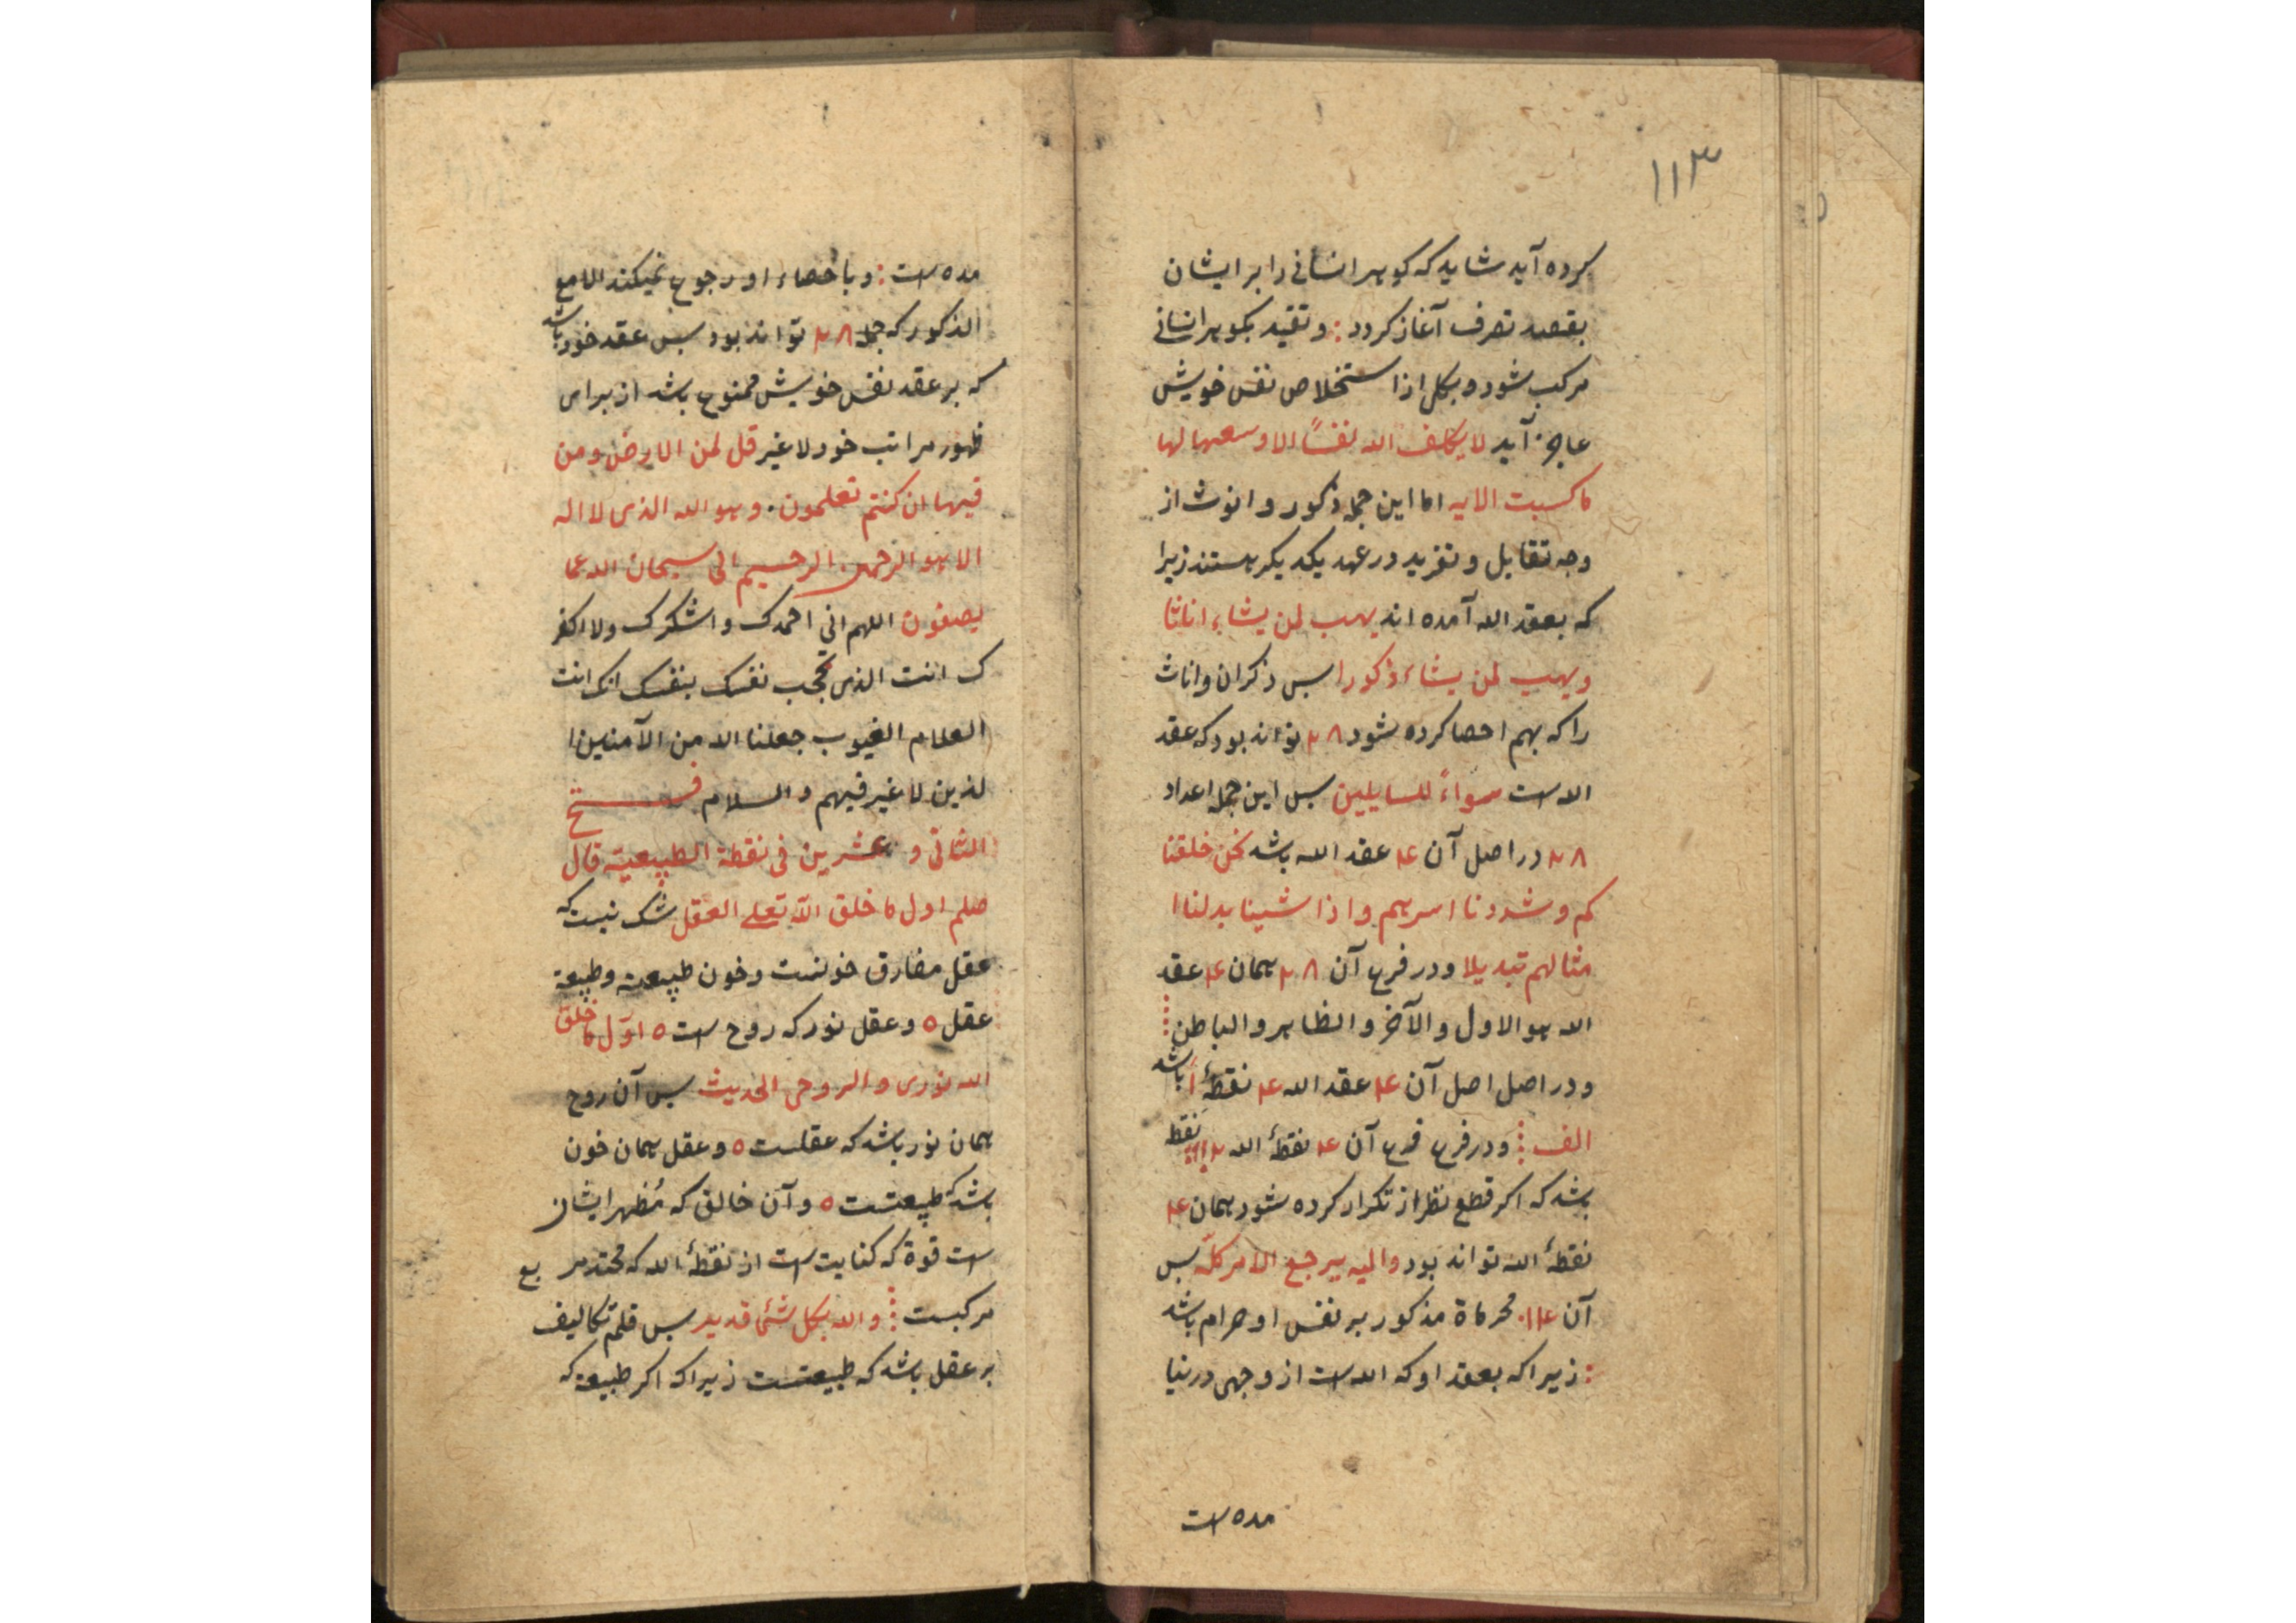 ۱۱۳
کرده آید شاید که کوهر انسانی را بر ایشان
بقصد تصرف آغاز کردد : و تقید بکوهر انسانی
مرکب شود و بکل از استخلاص نفس خویش
عاجز آید لا یکلف الله نفسًا الا وسعها لها
ما کسبت الایه اما این جمله ذکور و انوث از
وجه تقابل و تفرید در عهد یکدیکر هستند زیرا
که بعقد الله آمده اند یهب لمن یشاء اناثا
ویهب لمن یشاء ذکورا بس ذکران و اناث
را که بهم احصا کرده شود ۲۸ تواند بود که عقد
الله است سواءً للسایلین بس این جمله اعداد
۲۸ در اصل آن ۱۴ عقد الله باشد نحن خلقنا
کم و شددنا اسرهم و اذا شینا بدلنا ا
مثالهم تبدیلا و در فرع آن ۲۸ همان ۱۴ عقد
الله هو الاول والآخر والظاهر والباطن
و در اصل اصل آن ۱۴ عقد الله ۱۴ نقطهٔ ا باشد
الف و در فرع فرع آن ۱۴ نقطهٔ الله نقطه
باشد که اکر قطع نظر از تکرار کرده شود همان ۱۴
نقطهٔ الله تواند بود والیه یرجع الامر کلّه بس
آن ۱۱۴ محرماة مذکور بر نفس او حرام باشد
: زیرا که بعقد او که الله است از وجهی در نیا
مده است
مده است : و باحصاء او رجوع نمیکند اللامع
الذکور که جمله ۲۸ تواند بود بس عقد خود باشد
که بر عقد نفس خویش ممنوع باشد از برای
ظهور مراتب خود لاغیر قل لمن الارض و من
فیها ان کنتم تعلمون . و هو الله الذی لا اله
الا هو الرحمن الرحیم الی سبحان الله عما
یصفون اللهم انی احمدک و اشکرک ولا اکفر
ک انت الذی تحجب نفسک بنفسک انک انت
العلام الغیوب جعلنا الله من الآمنین ا
لذین لاغیر فیهم والسلام فتح
الثانی و عشرین فی نقطة الطبیعیة قال
صلعم اول ما خلق الله تعلی العقل شک نیست که
عقل مفارق خونست و خون طبیعة و طبیعة
عقل ٥ و عقل نور که روح است ٥ اول ما خلق
الله نوری و الروحی الحدیث بس آن روح
همان نور باشد که عقلست ٥ و عقل همان خون
باشد که طبیعتست ٥ و آن خالق که مُظهر ایشان
است قوة که کنایت است از نقطهٔ الله که مر بع
مرکبست والله بکل شئ قدیر بس قلم تکالیف
بر عقل باشد که طبیعتست زیرا که اکر طبیعة که